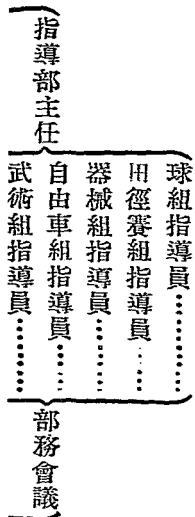 指導部主任
球組指導員…………
田徑賽組指導員……
器械組指導員………
自由車組指導員……
武術組指導員………
部務會議